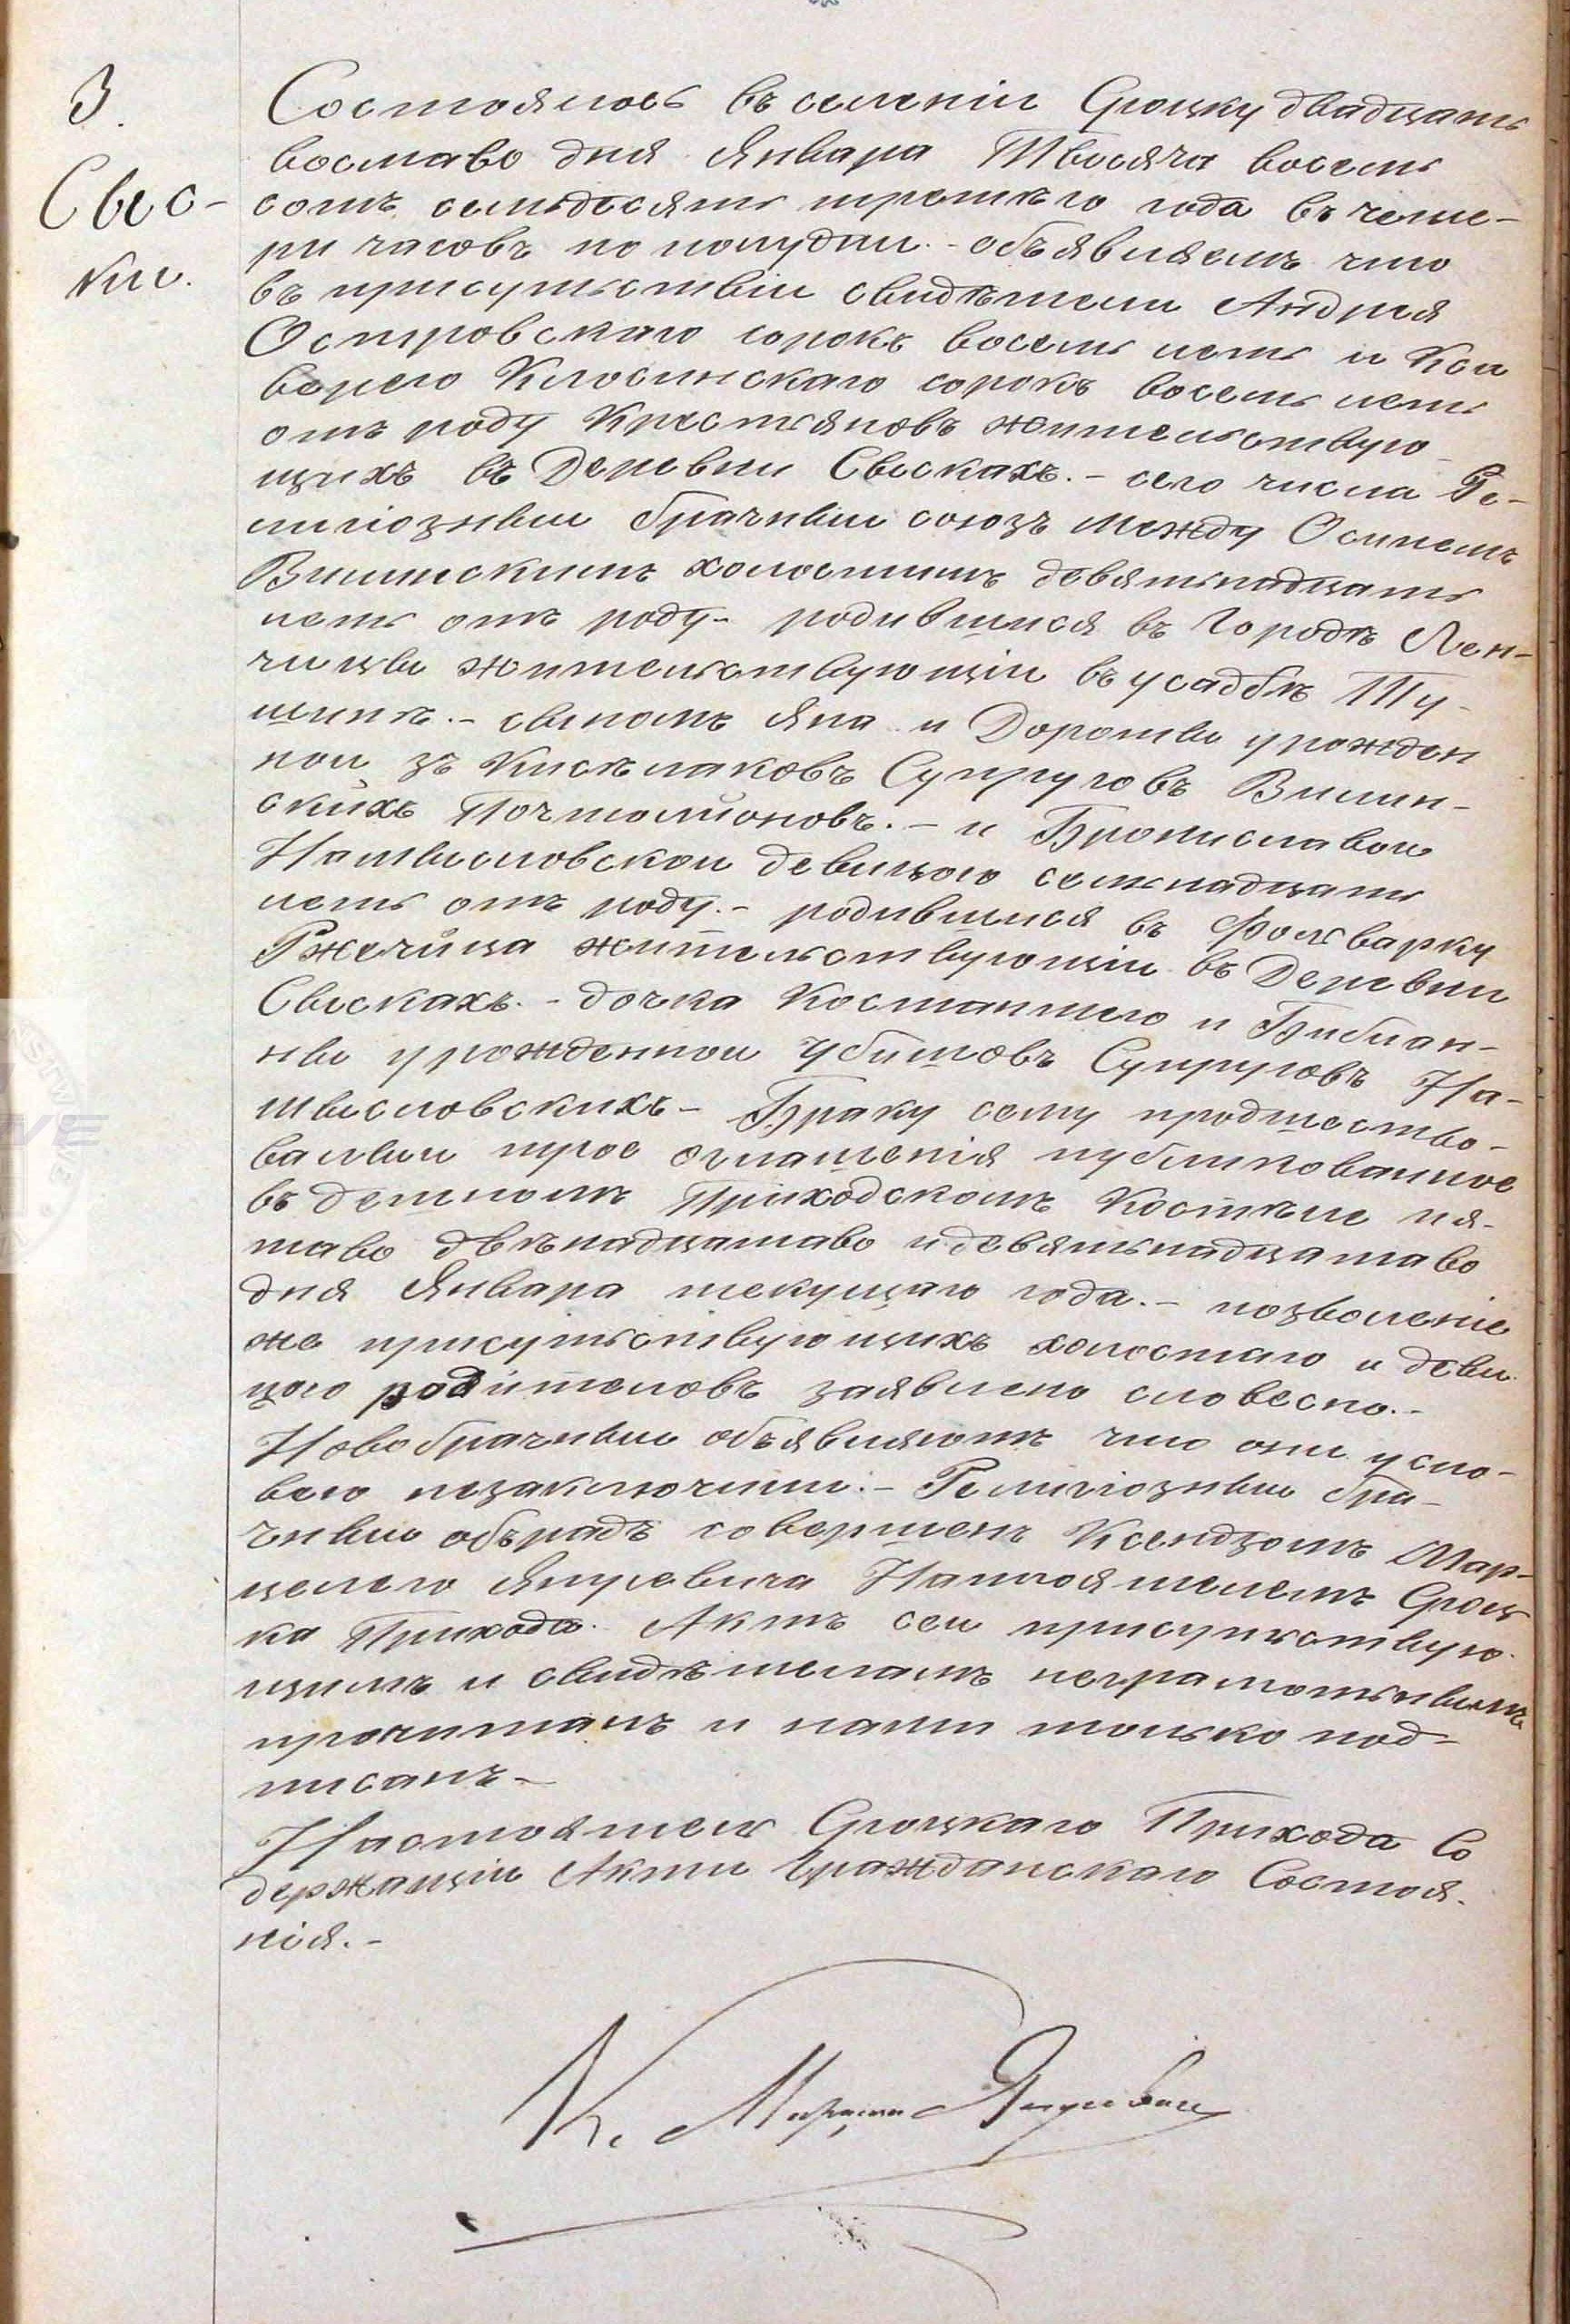 3.
Свыс-
ки.
Состоялось въ селеніи Сроцку двадцать
восмаво дня Января Тысяча восемь
сотъ семьдесять третьего года въ чете-
ри часовъ по полудни. - объявляемъ что
въ присутьствіи свидѣтели Андрея
Островскаго сорокъ восемь леть и Кса
верего Клосинскаго сорокъ восемь леть
отъ роду Крестьяновъ жительствую-
щихъ въ Деревни Свыскахъ. - сего числа Ре-
лигіозный брачный союзъ между Осипемъ
Вилинскимъ холостимъ девятьнадцать
леть отъ роду - родившися въ Городѣ Лен-
чицы жительствующіи въ усадбѣ Ту-
шинѣ. - сыномъ Яна и Дороты урожден
ной зъ Кисѣлаковъ Супруговъ Вилин-
скихъ Почтолйоновъ. - и Брониславою
Натысловской девицою семьнадцать
леть отъ роду. - родившися въ Фольварку
Ржечица жительствующіи въ Деревни
Свыскахъ. - дочка Костантего и Бибиан-
ны урожденной Убышовъ Супруговъ На-
тысловскихъ - Браку сему предшество-
валный трое оглашенія публикованное
въ детномъ Приходскомъ Костѣле пя-
таво двѣнадцатаво и девятьнадцатаво
дня Января текущаго года. - позволеніе
же присутьствующихъ холостаго и деви-
цою родителовъ заявлено словесно. -
Новобрачные объявляютъ что они усло-
вею незаключили. - Религіозный бра-
чный объради совершенъ Ксендзомъ Мар-
целего Януревича Настоятелемъ Сроц
ка Прихода. Актъ сеи присутьствую-
щимъ и свидѣтеламъ неграмотьнымъ
прочитанъ и нами только под-
писанъ -
Настоятель Сроцкаго Прихода Со
держащіи Акти Гражданскаго Состоя-
нія. -
К. Марцели Януревич